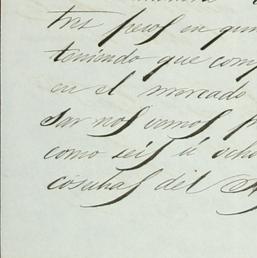 tres pesos en quin
teniendo que comp
en el mercado
sar nos vemos p
como seis ú ocho
cosubas del S